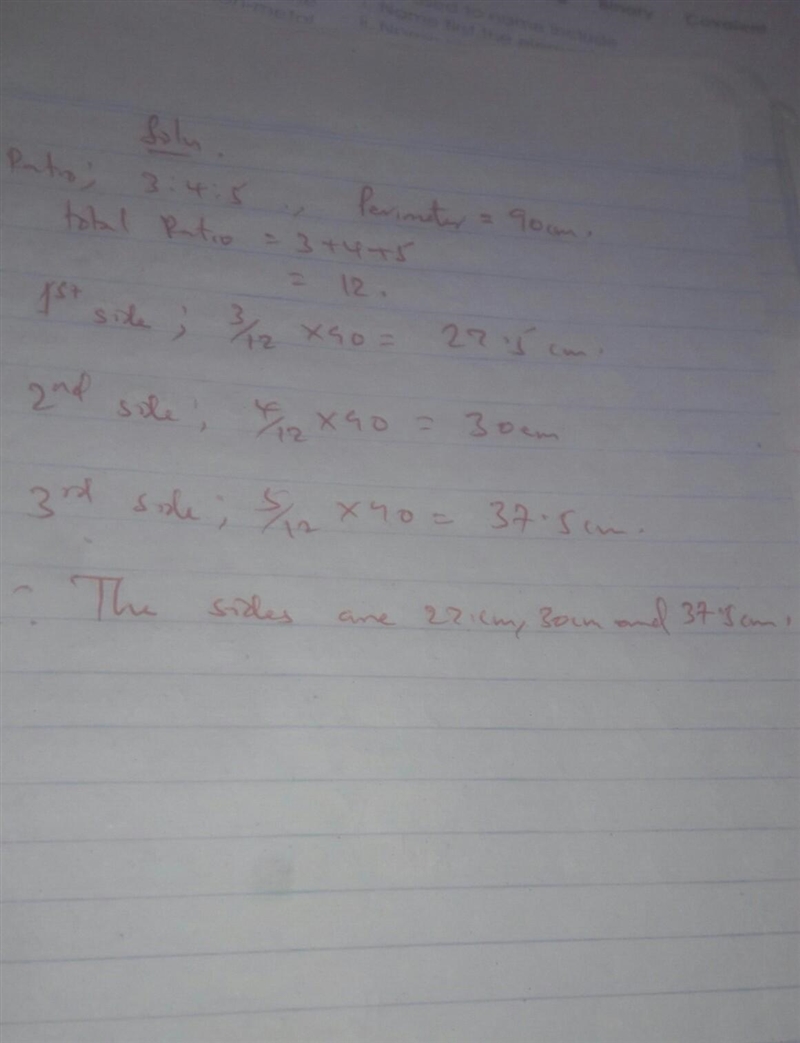 Binary Covalent
Name first the
Soln.
Ratio; 3:4:5 ., Perimeter = 90cm.
total Ratio = 3+4+5
= 12.
1st side; 3/12 ×90 = 22.5cm.
2nd side; 4/12 ×90 = 30cm
3rd side; 5/12 ×90 = 37.5cm.
∴ The sides are 22.cm, 30cm and 37.5cm.